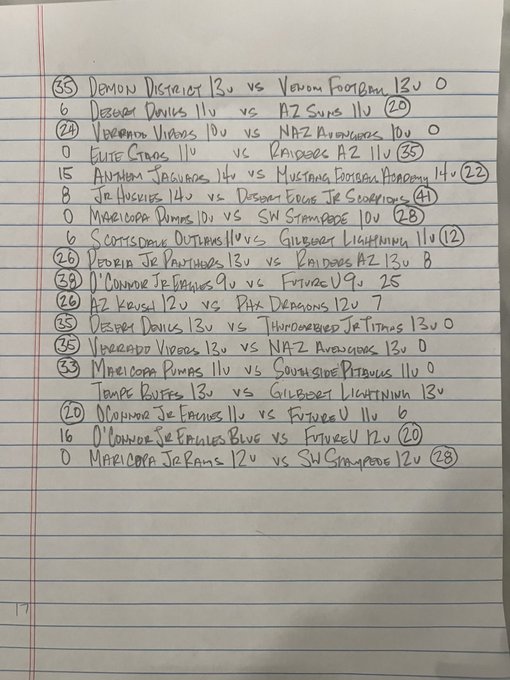 35 Demon District 13u vs Venom Football 13u 0
6 Desert Devils 11u vs AZ Suns 11u 20
24 Verrado Vipers 10u vs NAZ Avengers 10u 0
0 Elite Stars 11u vs Raiders AZ 11u 35
15 Anthem Jaguars 14u vs Mustang Football Academy 14u 22
8 Jr Huskies 14u vs Desert Edge Jr Scorpions 41
0 Maricopa Pumas 10u vs SW Stampede 10u 28
6 Scottsdale Outlaws 11u vs Gilbert Lightning 11u 12
26 Peoria Jr Panthers 13u vs Raiders AZ 13u 8
38 O'Connor Jr Eagles 9u vs Future U 9u 25
26 AZ Krush 12u vs PHX Dragons 12u 7
35 Desert Devils 13u vs Thunderbird Jr Titans 13u 0
35 Verrado Vipers 13u vs NAZ Avengers 13u 0
33 Maricopa Pumas 11u vs Southside Pitbulls 11u 0
Tempe Buffs 13u vs Gilbert Lightning 13u
20 OConnor Jr Eagles 11u vs Future U 11u 6
16 O'Connor Jr Eagles Blue vs Future U 12u 20
0 Maricopa Jr Rams 12u vs SW Stampede 12u 28
17